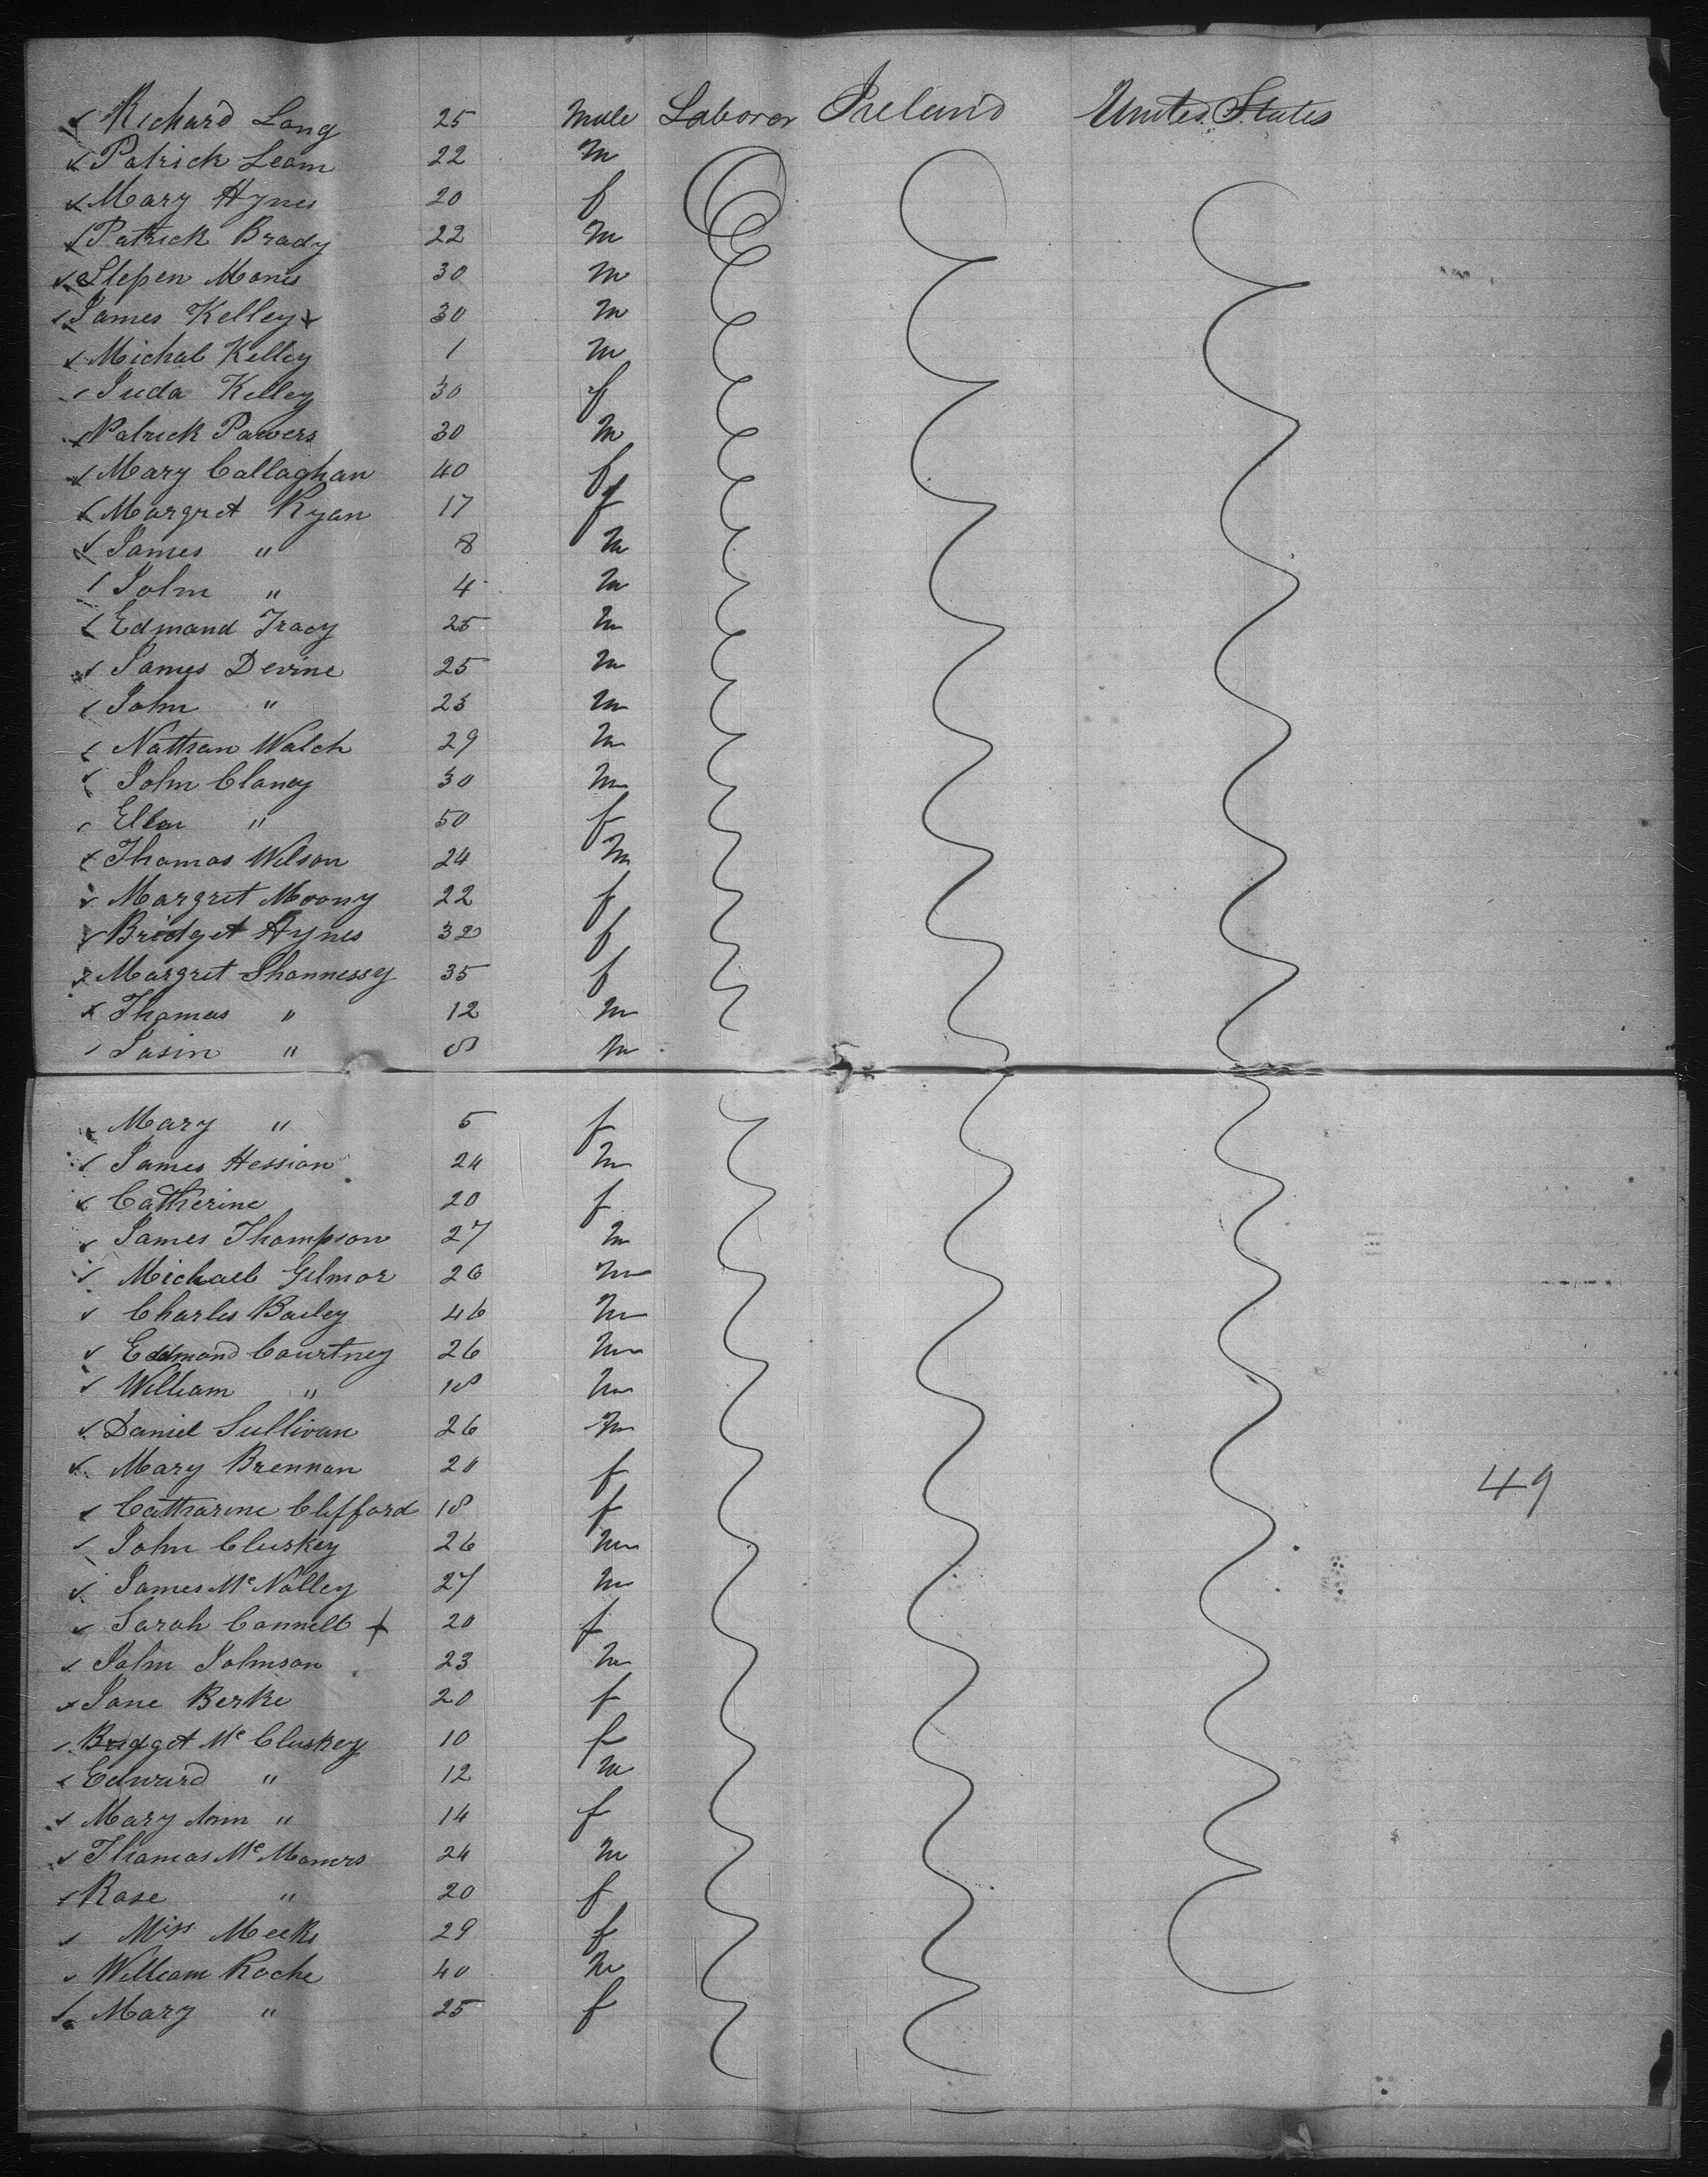 Richard Long 25 Male Laborer Ireland United States
Patrick Leam 22 m
Mary Hynes 20 f
Patrick Brady 22 m
Stepen Monis 30 m
James Kelley 30 m
Michal Kelley 1 m
Juda Kelley 30 f
Patrick Powers 30 m
Mary Callaghan 40 f
Margret Ryan 17 f
James " 8 m
John " 4 m
Edmand Tracy 25 m
James Devine 25 m
John " 23 m
Nathan Walch 29 m
John Clancy 30 m
Ellen " 50 f
Thomas Wilson 24 m
Margret Moony 22 f
Bridget Hynes 32 f
Margret Shannessy 35 f
Thomas " 12 m
" 8 m
Mary " 5 f
James Hession 24 m
Catherine 20 f
James Thompson 27 m
Michael Gilmor 26 m
Charles Bailey 46 m
Edmond Courtney 26 m
William " 18 m
Daniel Sullivan 26 m
Mary Brennan 20 f 49
Catharine Clifford 18 f
John Cluskey 26 m
James McNalley 27 m
Sarah Connell + 20 f
John Johnson 23 m
Jane Berke 20 f
Bridget McCluskey 10 f
Edward " 12 m
Mary Ann " 14 f
Thomas McManers 24 m
Rose " 20 f
Miss Meeks 29 f
William Roche 40 m
Mary " 25 f